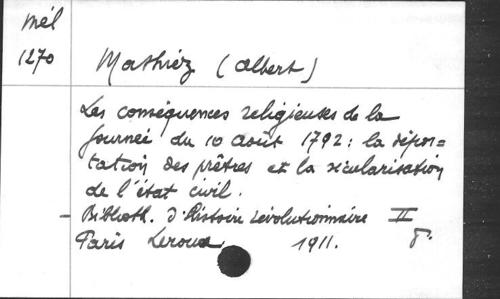 Mél
1270
Mathiez (Albert)
Les conséquences religieuses de la
journée du 10 Août 1792 : la dépor=
tation des prêtres et la sécularisation
de l'état civil.
- Biblioth. d'Histoire révolutionnaire II
Paris Leroux 1911. 8°.